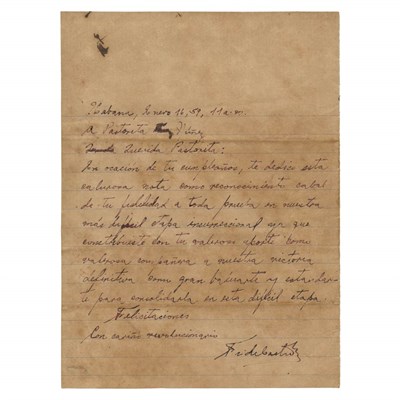 Habana, Enero 16, 59, 11 a.m.
A Pastorita Núñez
Querida Pastorita:
En ocación de tu cumpleaños, te dedico esta
calurosa nota como reconocimiento cabal
de tu fidelidad a toda prueba en nuestra
más difícil etapa insurreccional ya que
contribuiste con tu valioso aporte como
valerosa compañera a nuestra victoria
definitiva como gran baluarte y estandar-
te para consolidarla en esta difícil etapa.
Felicitaciones.
Con cariño revolucionario
Fidel Castro